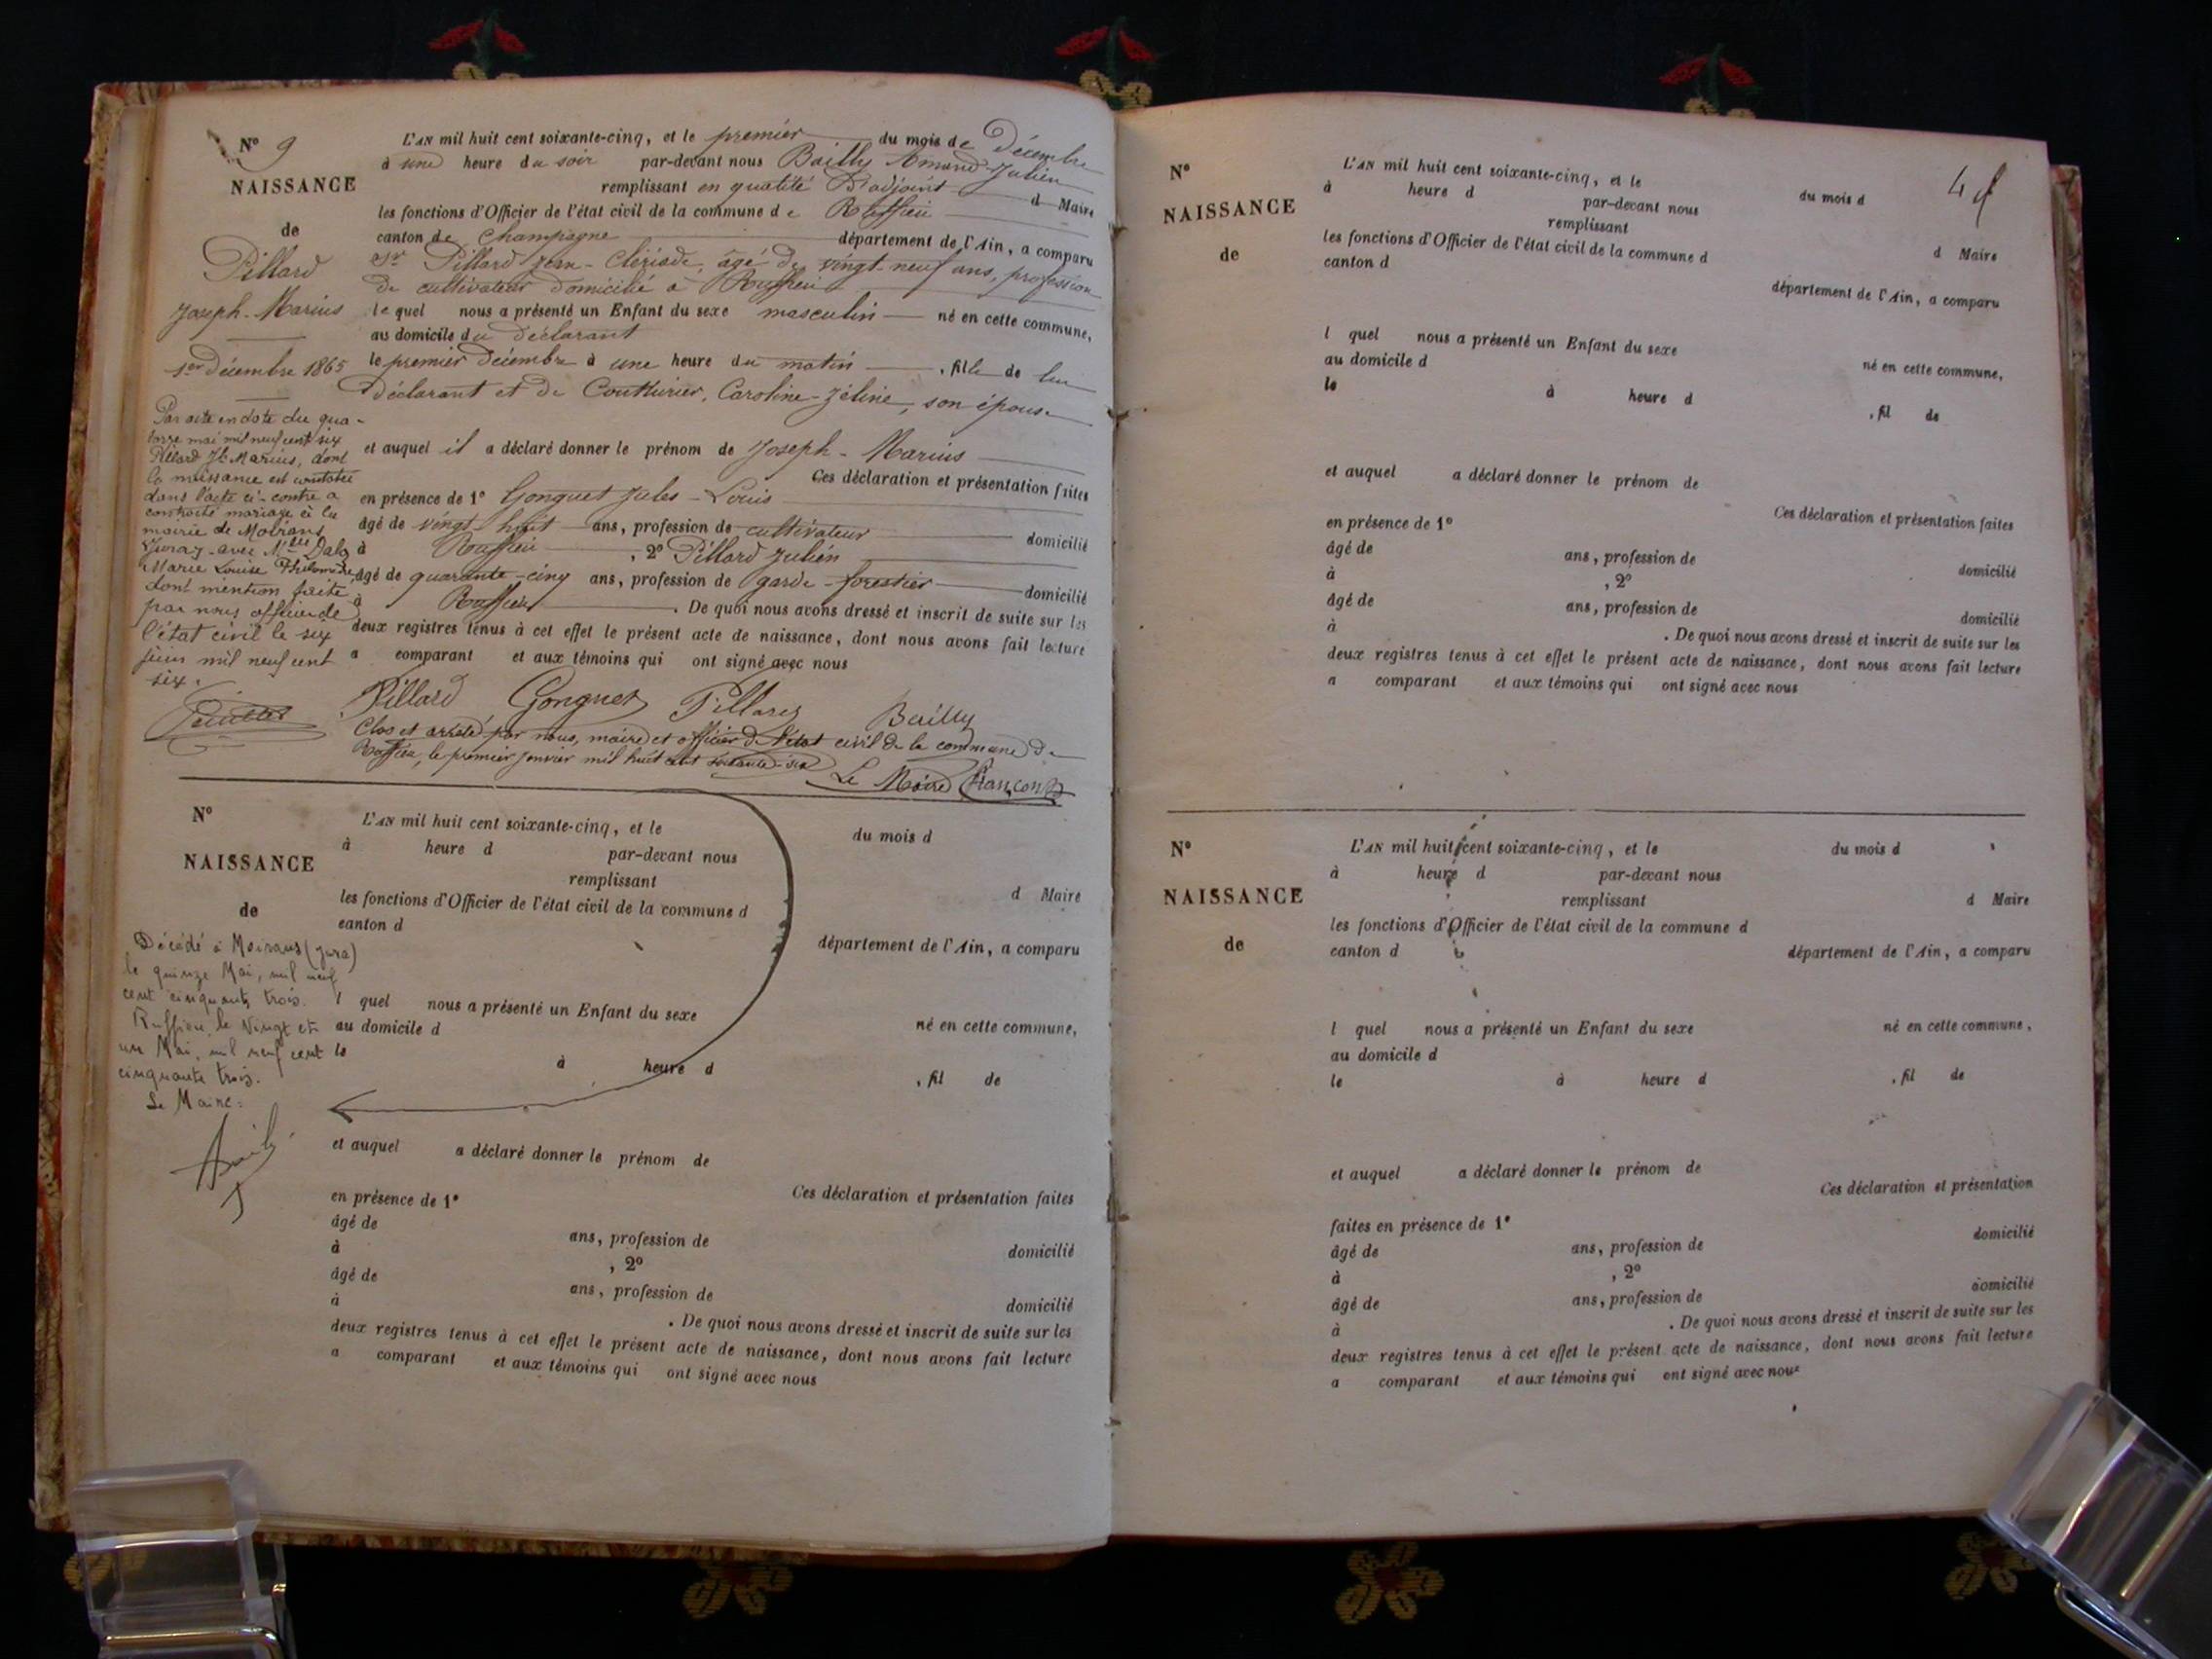 N° 9
NAISSANCE
de
Pillard
Joseph-Marius
1er Décembre 1865
L'AN mil huit cent soixante-cinq, et le premier du mois de Décembre
à une heure du soir par-devant nous Bailly Amand Julien
remplissant en qualité D'adjoint d Maire
les fonctions d'Officier de l'état civil de la commune de Ruffieu
canton de Champagne département de l'Ain, a comparu
Sr Pillard Jean-Clériade, âgé de vingt-neuf ans, profession
de cultivateur domicilié à Ruffieu
le quel nous a présenté un Enfant du sexe masculin né en cette commune,
au domicile du déclarant
le premier Décembre à une heure du matin , fils de lui
déclarant et de Couthurier, Caroline-Zéline, son épouse
et auquel il a déclaré donner le prénom de Joseph-Marius
Ces déclaration et présentation faites
en présence de 1° Gonguet Jules-Louis
âgé de vingt-huit ans, profession de cultivateur domicilié
à Ruffieu , 2° Pillard Julien
âgé de quarante-cinq ans, profession de garde-forestier domicilié
à Ruffieu . De quoi nous avons dressé et inscrit de suite sur les
deux registres tenus à cet effet le présent acte de naissance, dont nous avons fait lecture
a comparant et aux témoins qui ont signé avec nous
Pillard Gonguet Pillard Bailly
Clos et arrêté par nous, maire et officier de l'état civil de la commune de
Ruffieu, le premier Janvier mil huit cent soixante-six
Le Maire Françon
Par acte en date du qua-
torze mai mil neuf cent six
Pillard Jh Marius, dont
la naissance est constatée
dans l'acte ci-contre a
contracté mariage à la
mairie de Moirans
Jura, avec Mlle Dalo
Marie Louise Philomène,
dont mention faite
par nous officier de
l'état civil le six
juin mil neuf cent
six.
N°
NAISSANCE
de
Décédé à Moirans (Jura)
le quinze Mai, mil neuf
cent cinquante trois.
Ruffieu, le Vingt et
un Mai, mil neuf cent
cinquante trois.
Le Maire:
L'AN mil huit cent soixante-cinq, et le du mois d
à heure d par-devant nous
remplissant d Maire
les fonctions d'Officier de l'état civil de la commune d
canton d département de l'Ain, a comparu
l quel nous a présenté un Enfant du sexe né en cette commune,
au domicile d
le à heure d , fil de
et auquel a déclaré donner le prénom de
Ces déclaration et présentation faites
en présence de 1°
âgé de ans, profession de domicilié
à , 2°
âgé de ans, profession de domicilié
à . De quoi nous avons dressé et inscrit de suite sur les
deux registres tenus à cet effet le présent acte de naissance, dont nous avons fait lecture
a comparant et aux témoins qui ont signé avec nous
N°
NAISSANCE
de
L'AN mil huit cent soixante-cinq, et le du mois d
à heure d par-devant nous
remplissant d Maire
les fonctions d'Officier de l'état civil de la commune d
canton d département de l'Ain, a comparu
l quel nous a présenté un Enfant du sexe
au domicile d né en cette commune,
le à heure d , fil de
et auquel a déclaré donner le prénom de
Ces déclaration et présentation faites
en présence de 1°
âgé de ans, profession de domicilié
à , 2°
âgé de ans, profession de domicilié
à . De quoi nous avons dressé et inscrit de suite sur les
deux registres tenus à cet effet le présent acte de naissance, dont nous avons fait lecture
a comparant et aux témoins qui ont signé avec nous
N°
NAISSANCE
de
L'AN mil huit cent soixante-cinq, et le du mois d
à heure d par-devant nous
remplissant d Maire
les fonctions d'Officier de l'état civil de la commune d
canton d département de l'Ain, a comparu
l quel nous a présenté un Enfant du sexe né en cette commune,
au domicile d
le à heure d , fil de
et auquel a déclaré donner le prénom de
Ces déclaration et présentation
faites en présence de 1°
âgé de ans, profession de domicilié
à , 2°
âgé de ans, profession de domicilié
à . De quoi nous avons dressé et inscrit de suite sur les
deux registres tenus à cet effet le présent acte de naissance, dont nous avons fait lecture
a comparant et aux témoins qui ont signé avec nous